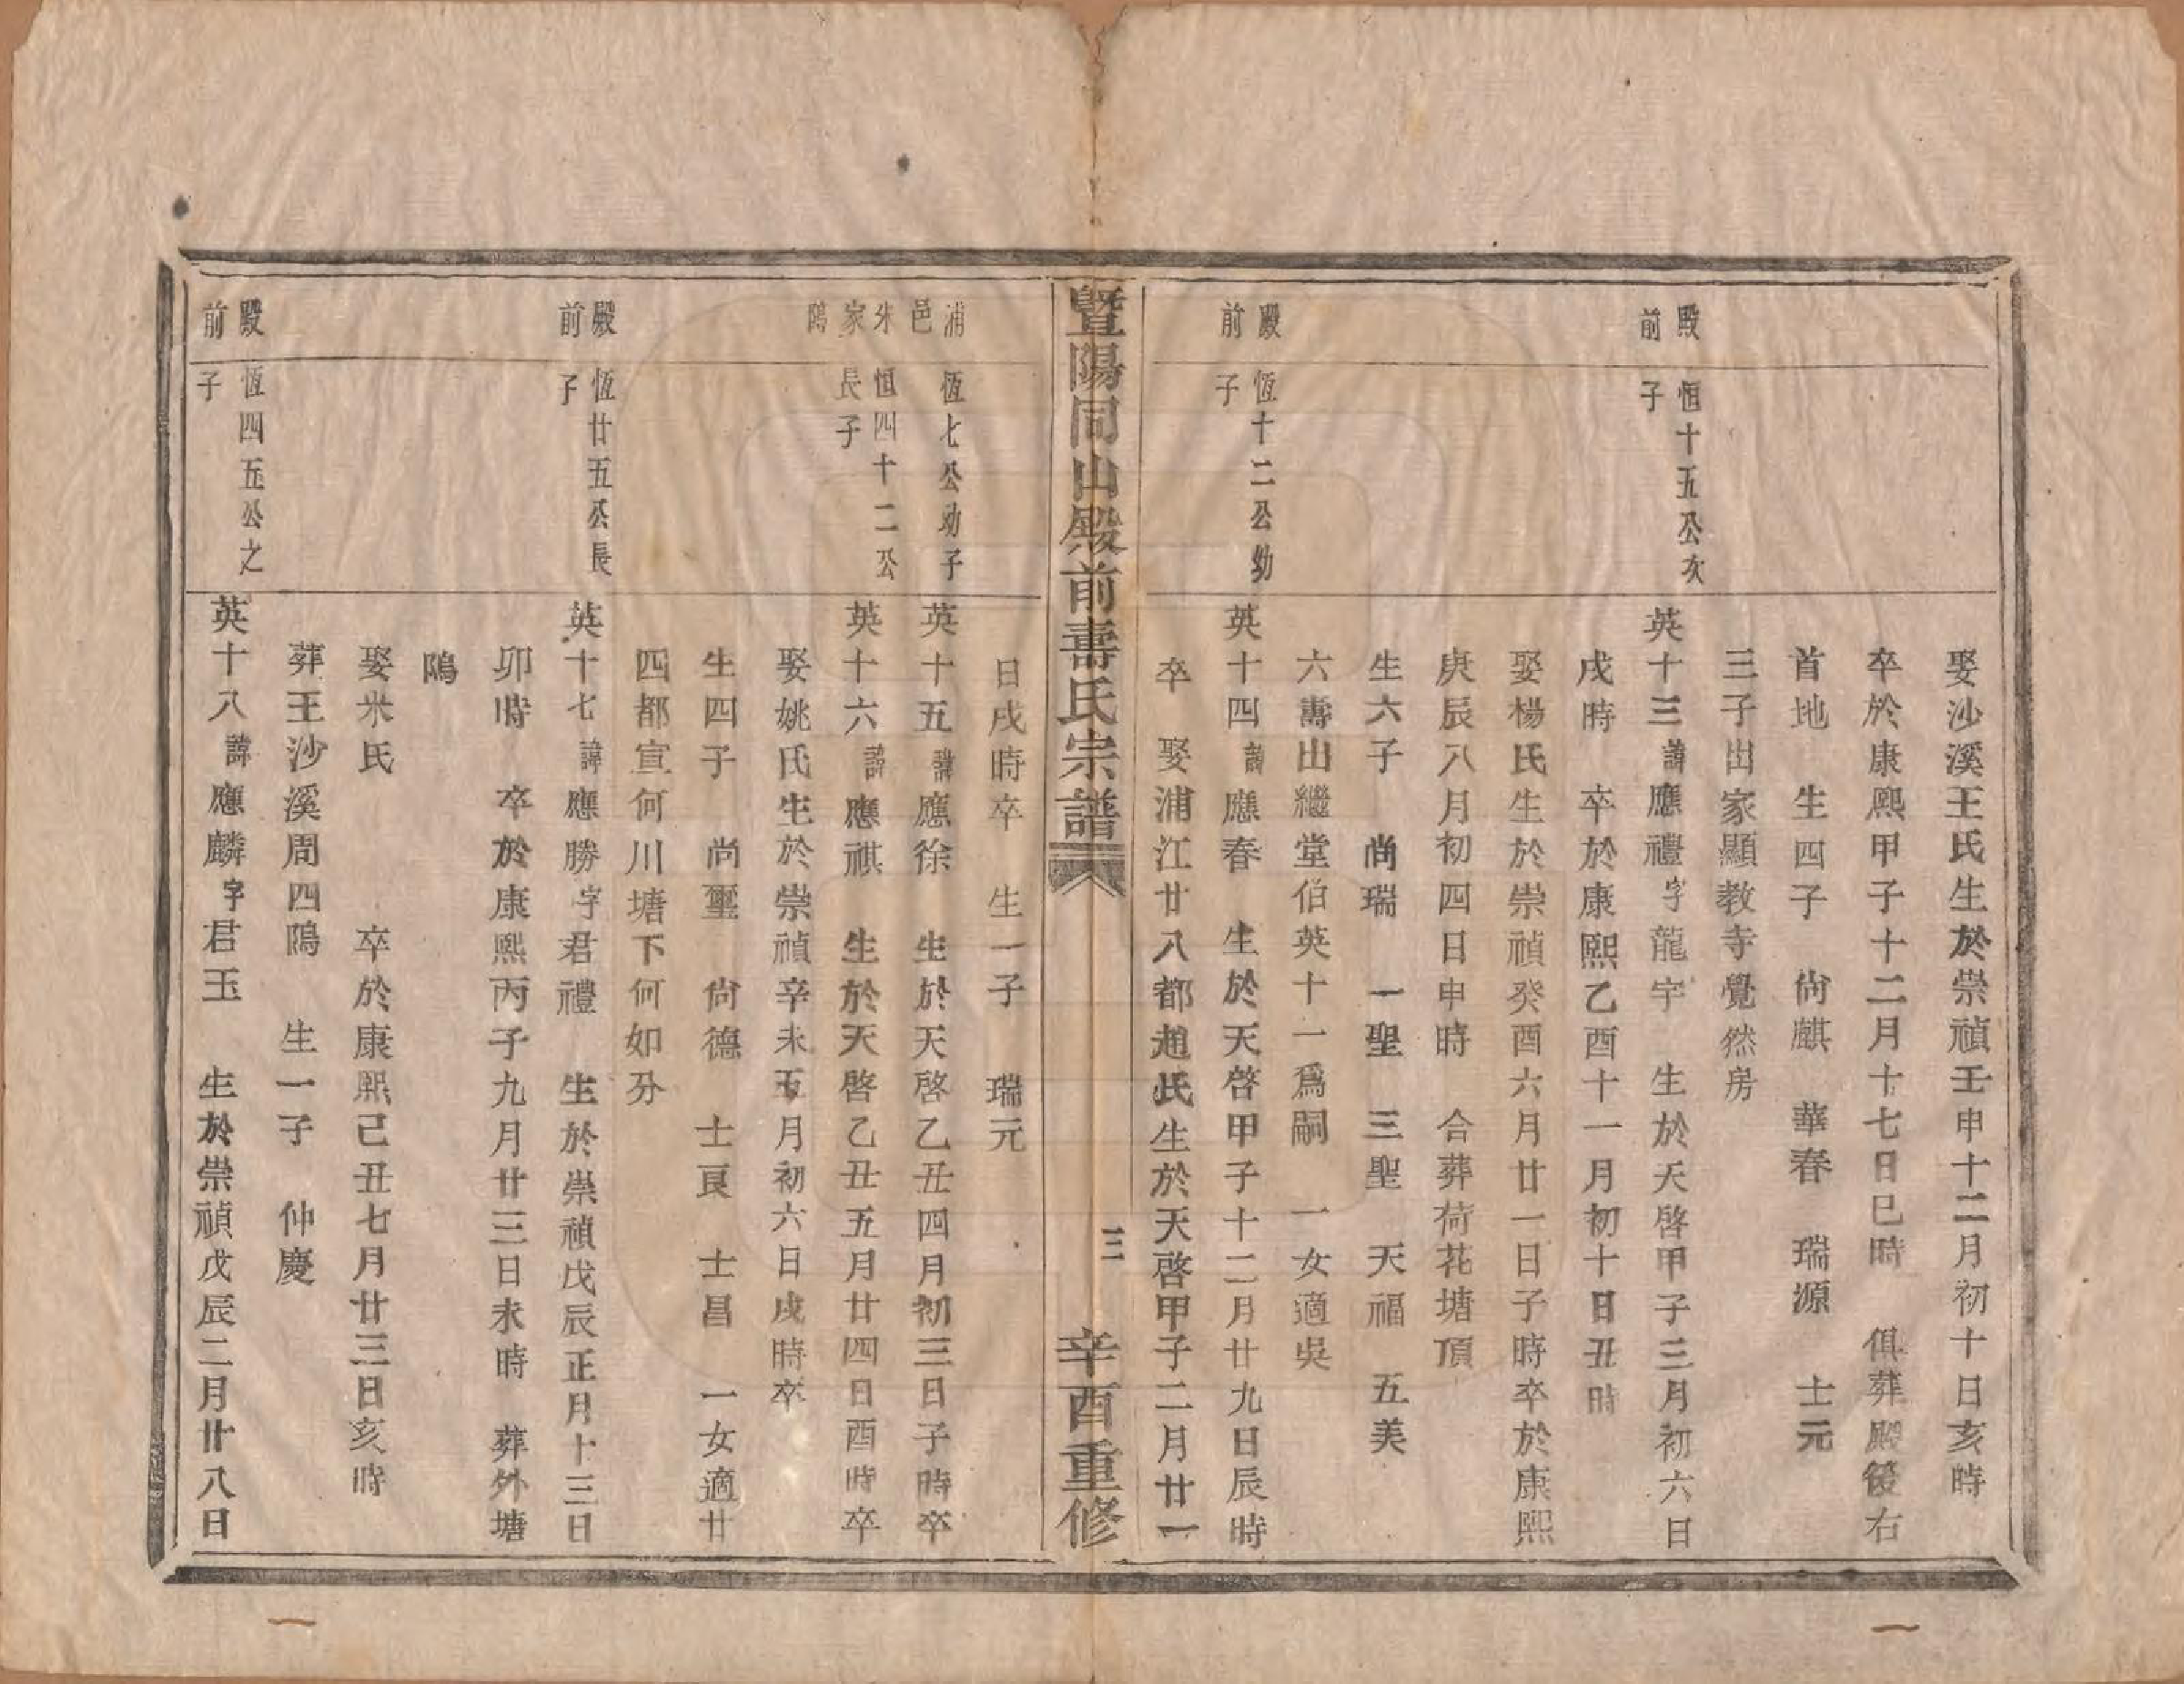 娶沙溪王氏生於崇禎壬申十二月初十日亥時
卒於康熙甲子十二月十七日巳時　俱葬殿後右
首地　生四子　尚麒　華春　瑞源　士元
三子出家顯教寺覺然房
殿前
恒十五公次子
英十三諱應禮字龍宇　生於天啓甲子三月初六日
戌時　卒於康熙乙酉十一月初十日丑時
娶楊氏生於崇禎癸酉六月廿一日子時卒於康熙
庚辰八月初四日申時　合葬荷花塘頂
生六子　尚瑞　一聖　三聖　天福　五美
六壽山繼堂伯英十一為嗣　一女適吳
殿前
恆十二公幼子
英十四諱應春　生於天啓甲子十二月廿九日辰時
卒　娶浦江廿八都趙氏生於天啓甲子二月廿一
暨陽同山殿前壽氏宗譜
三
辛酉重修
日戌時卒　生一子　瑞元
浦邑朱家隖
恆七公幼子
英十五諱應徐　生於天啓乙丑四月初三日子時卒
恒四十二公長子
英十六諱應祺　生於天啓乙丑五月廿四日酉時卒
娶姚氏生於崇禎辛未五月初六日戌時卒
生四子　尚璽　尚德　士良　士昌　一女適廿
四都宣何川塘下何如分
殿前
恆廿五公長子
英十七諱應勝字君禮　生於崇禎戊辰正月十三日
卯時　卒於康熙丙子九月廿三日未時　葬外塘
隖
娶米氏　卒於康熙己丑七月廿三日亥時
葬王沙溪周四隖　生一子　仲慶
殿前
恆四五公之子
英十八諱應麟字君玉　生於崇禎戊辰二月廿八日